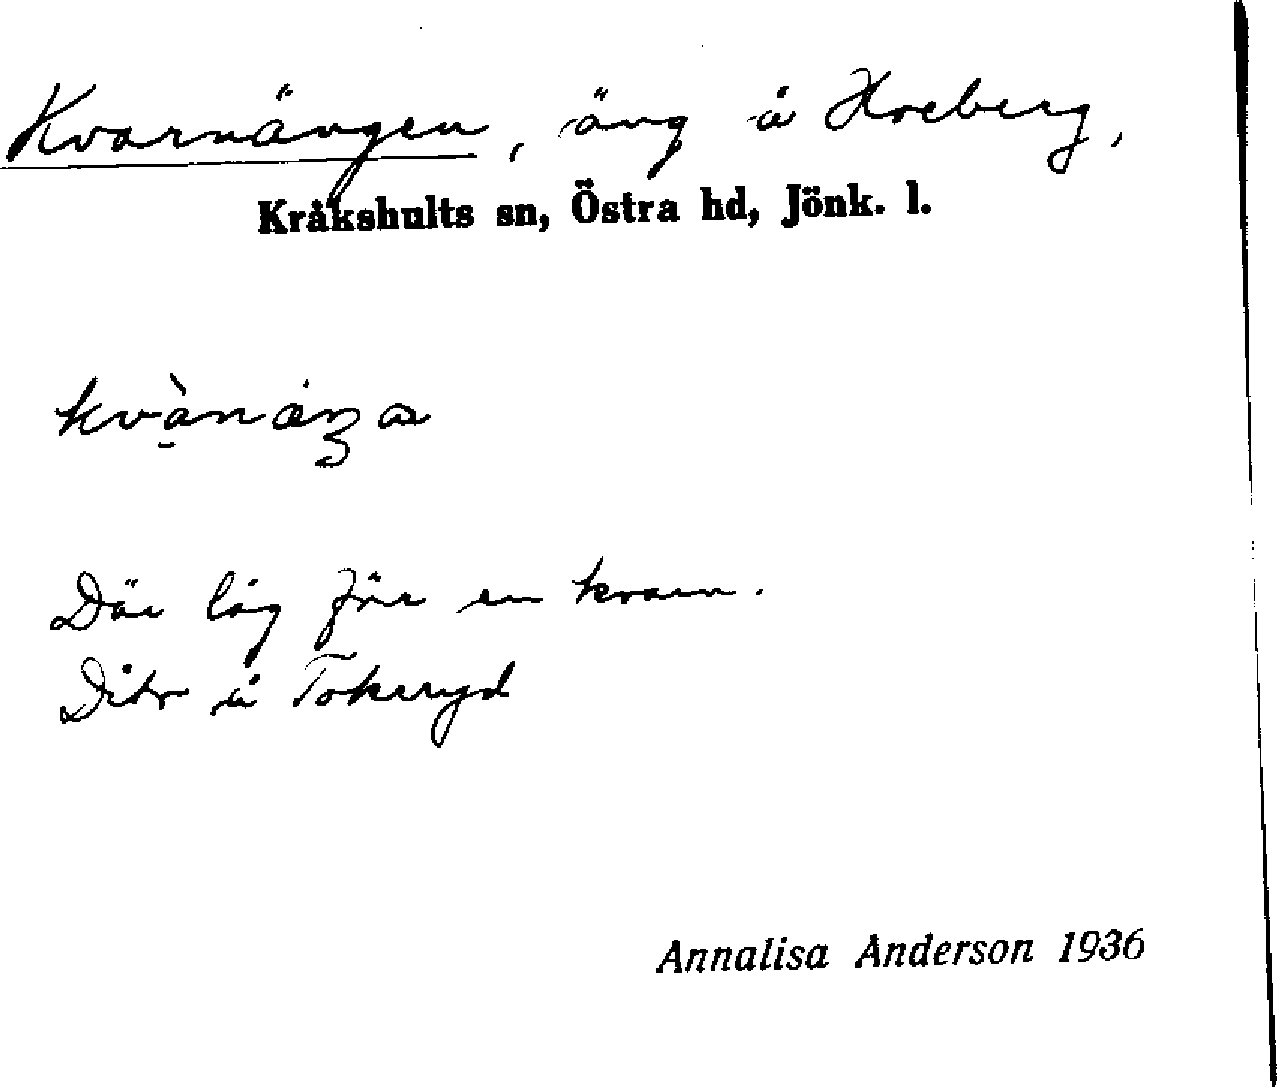 Kvarnängen, äng å Hreberg,
Kråkshults sn, Östra hd, Jönk. l.
Där låg förr en kvarn.
Dito å Tokeryd
Annalisa Anderson 1936